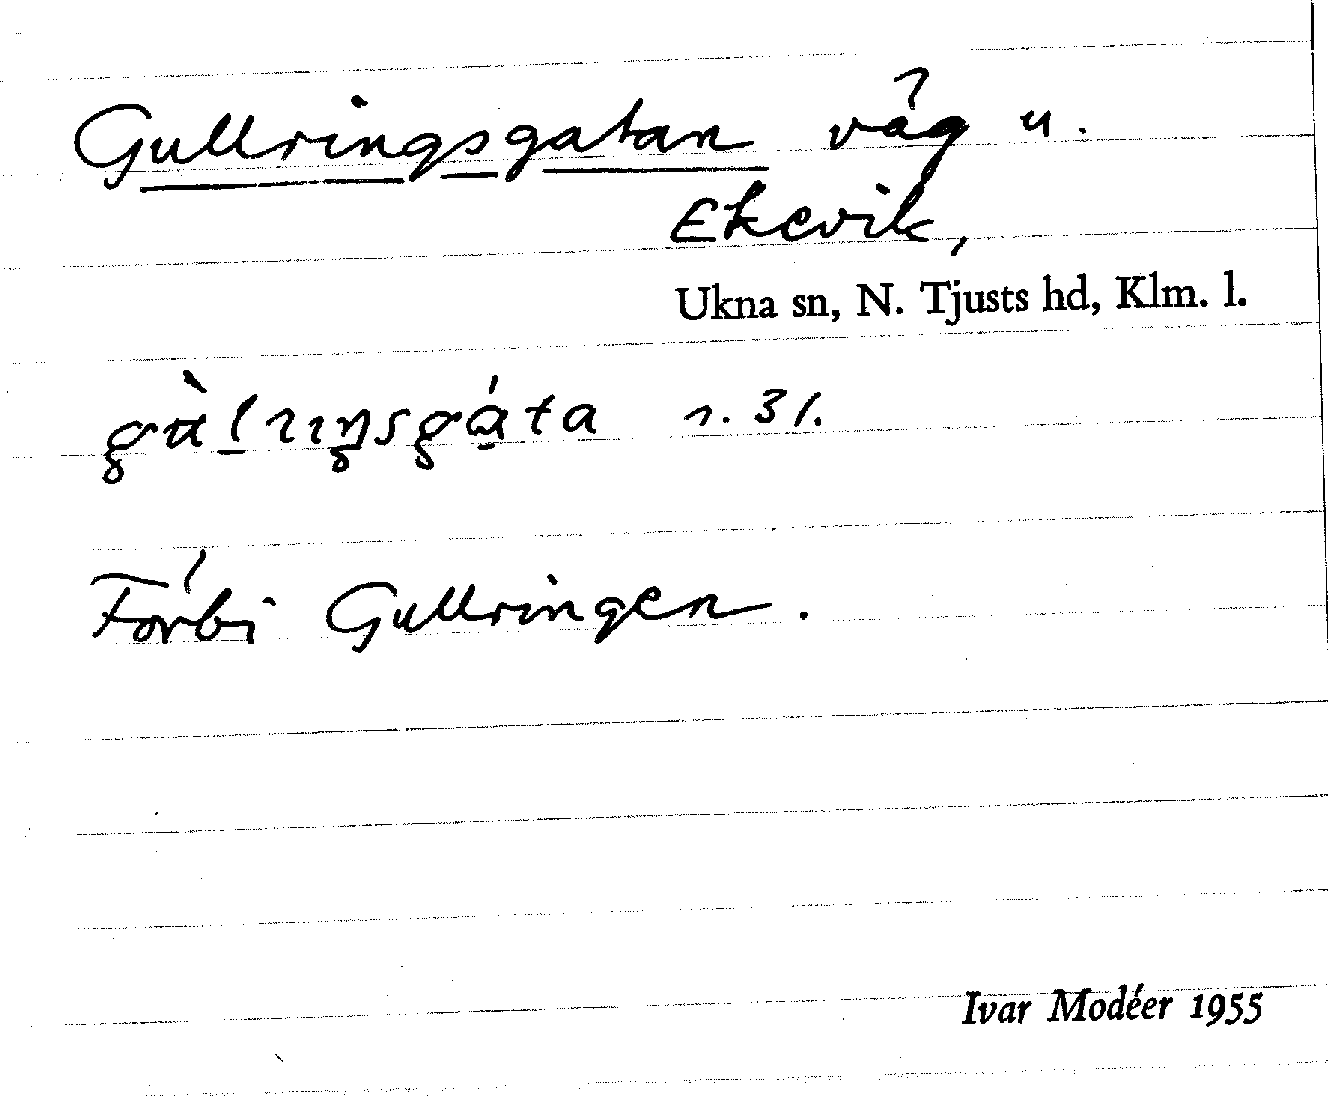 Gullringsgatan väg u.
Ekevik,
Ukna sn, N. Tjusts hd, Klm. l.
r. 31.
Förbi Gullringen.
Ivar Modéer 1955